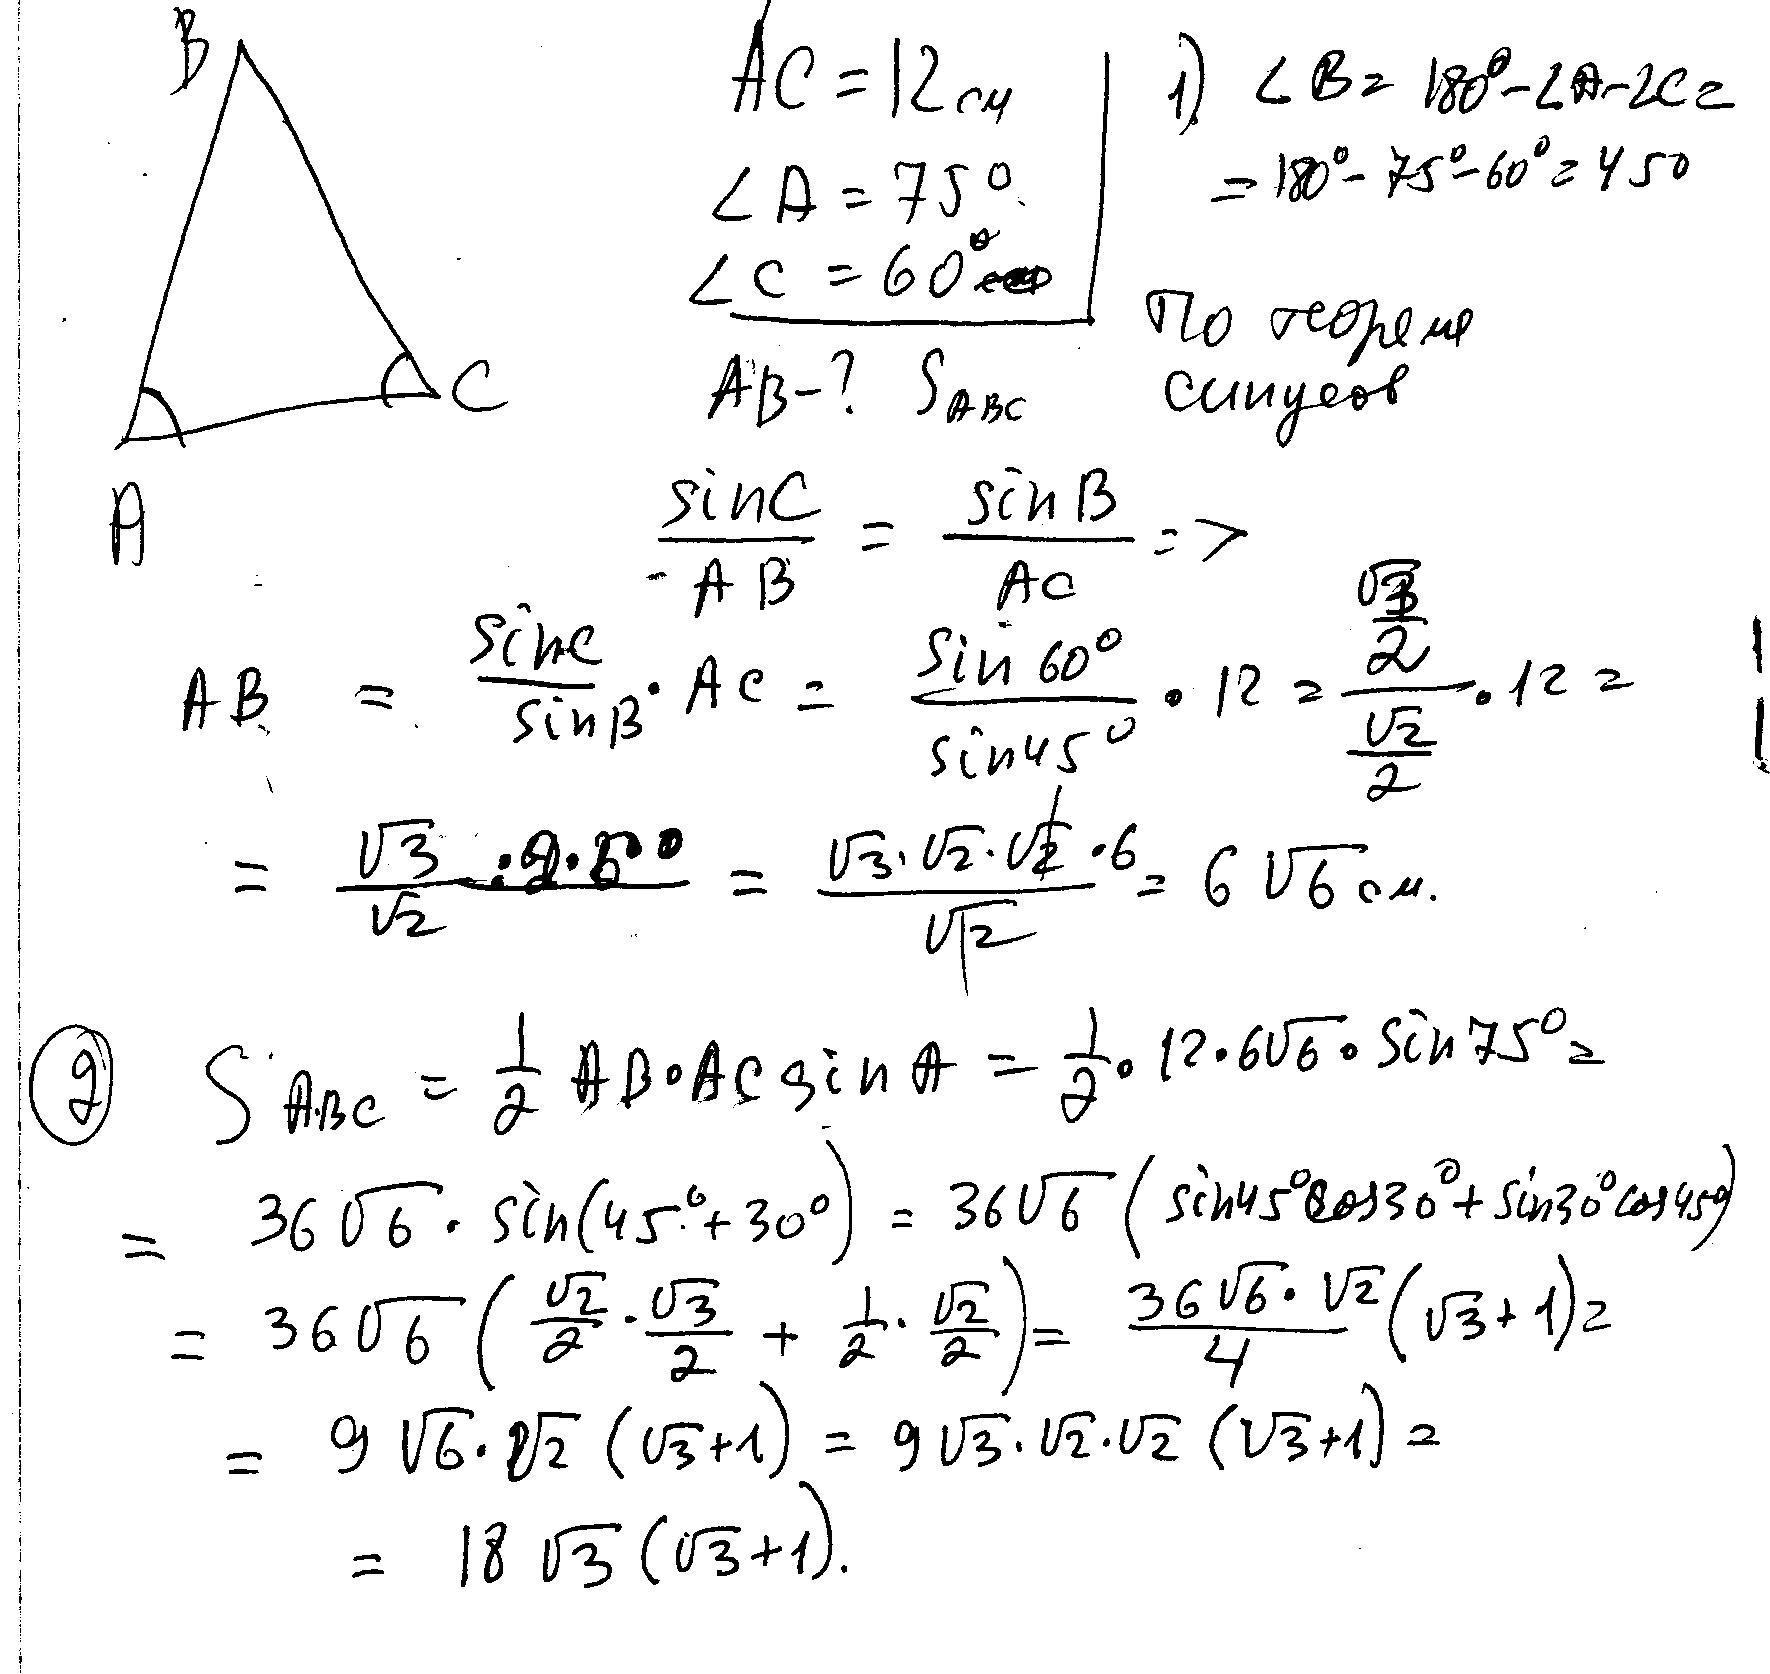 B
AC = 12 см
∠A = 75°
∠C = 60°
AB-? S_ABC
1) ∠B = 180° - ∠A - ∠C =
= 180° - 75° - 60° = 45°
По теореме
синусов
C
A
sinC/AB = sinB/AC =>
AB = sinC/sinB · AC = sin60°/sin45° · 12 = (√3/2)/(√2/2) · 12 =
= √3·2·6/√2 = √3·√2·√2·6/√2 = 6√6 см.
2 S_ABC = 1/2 AB·AC sinA = 1/2 · 12·6√6 · sin75° =
= 36√6 · sin(45°+30°) = 36√6 (sin45°cos30° + sin30°cos45°)
= 36√6 (√2/2 · √3/2 + 1/2 · √2/2) = 36√6·√2/4 (√3+1) =
= 9√6·√2 (√3+1) = 9√3·√2·√2 (√3+1) =
= 18√3 (√3+1).